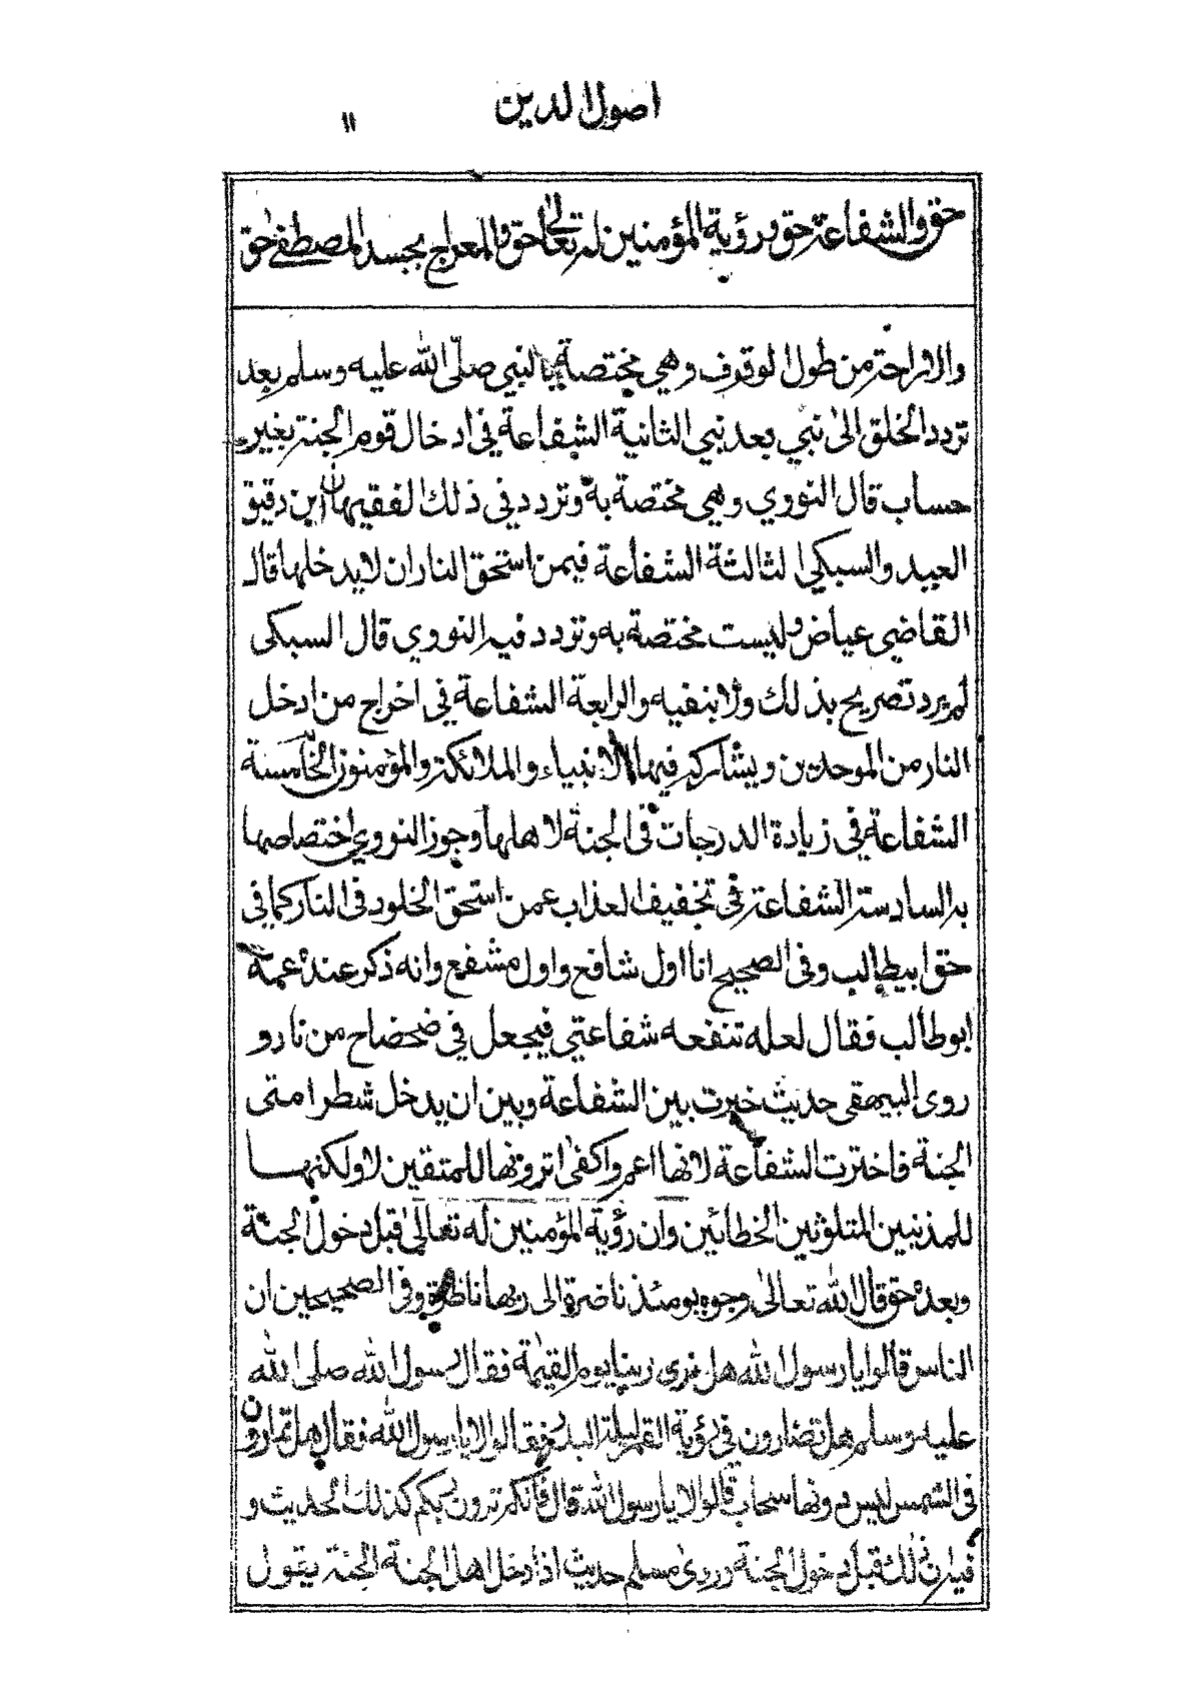 اصول الدين
١١
حق والشفاعة حق ورؤية المؤمنين له تعالى حق والمعراج بجسد المصطفى حق
والاراحة من طول الوقوف وهي مختصة بالنبي صلى الله عليه وسلم بعد
تردد الخلق الى نبي بعد نبي الثانية الشفاعة في ادخال قوم الجنة بغير
حساب قال النووي وهي مختصة به وتردد في ذلك الفقيهان ابن دقيق
العيد والسبكي الثالثة الشفاعة فيمن استحق النار ان لا يدخلها قال
القاضي عياض وليست مختصة به وتردد فيه النووي قال السبكى
لم يرد تصريح بذلك ولا بنفيه والرابعة الشفاعة في اخراج من ادخل
النار من الموحدين ويشاركه فيها الانبياء والملائكة والمؤمنون الخامسة
الشفاعة في زيادة الدرجات في الجنة لاهلها وجوز النووي اختصاصها
به السادسة الشفاعة في تخفيف العذاب عمن استحق الخلود في النار كما في
حق ابيطالب وفى الصحيح انا اول شافع واول مشفع وانه ذكر عنده عمه
ابو طالب فقال لعله تنفعه شفاعتي فيجعل في ضحضاح من نار و
روى البيهقى حديث خيرت بين الشفاعة وبين ان يدخل شطر امتى
الجنة فاخترت الشفاعة لانها اعم واكفى اترونها للمتقين لا ولكنها
للمذنبين المتلوثين الخطائين وان رؤية المؤمنين له تعالى قبل دخول الجنة
وبعده حق قال الله تعالى وجوه يومئذ ناضرة الى ربها ناظرة وفى الصحيحين ان
الناس قالوا يا رسول الله هل نرى ربنا يوم القيمة فقال رسول الله صلى الله
عليه وسلم هل تضارون في رؤية القمر ليلة البدر فقالوا لا يا رسول الله فقال هل تمارون
فى الشمس ليس دونها سحاب قالوا لا يا رسول الله قال فانكم ترون ربكم كذلك الحديث و
فيه ان ذلك قبل دخول الجنة وروى مسلم حديث اذا دخل اهل الجنة الجنة يقول